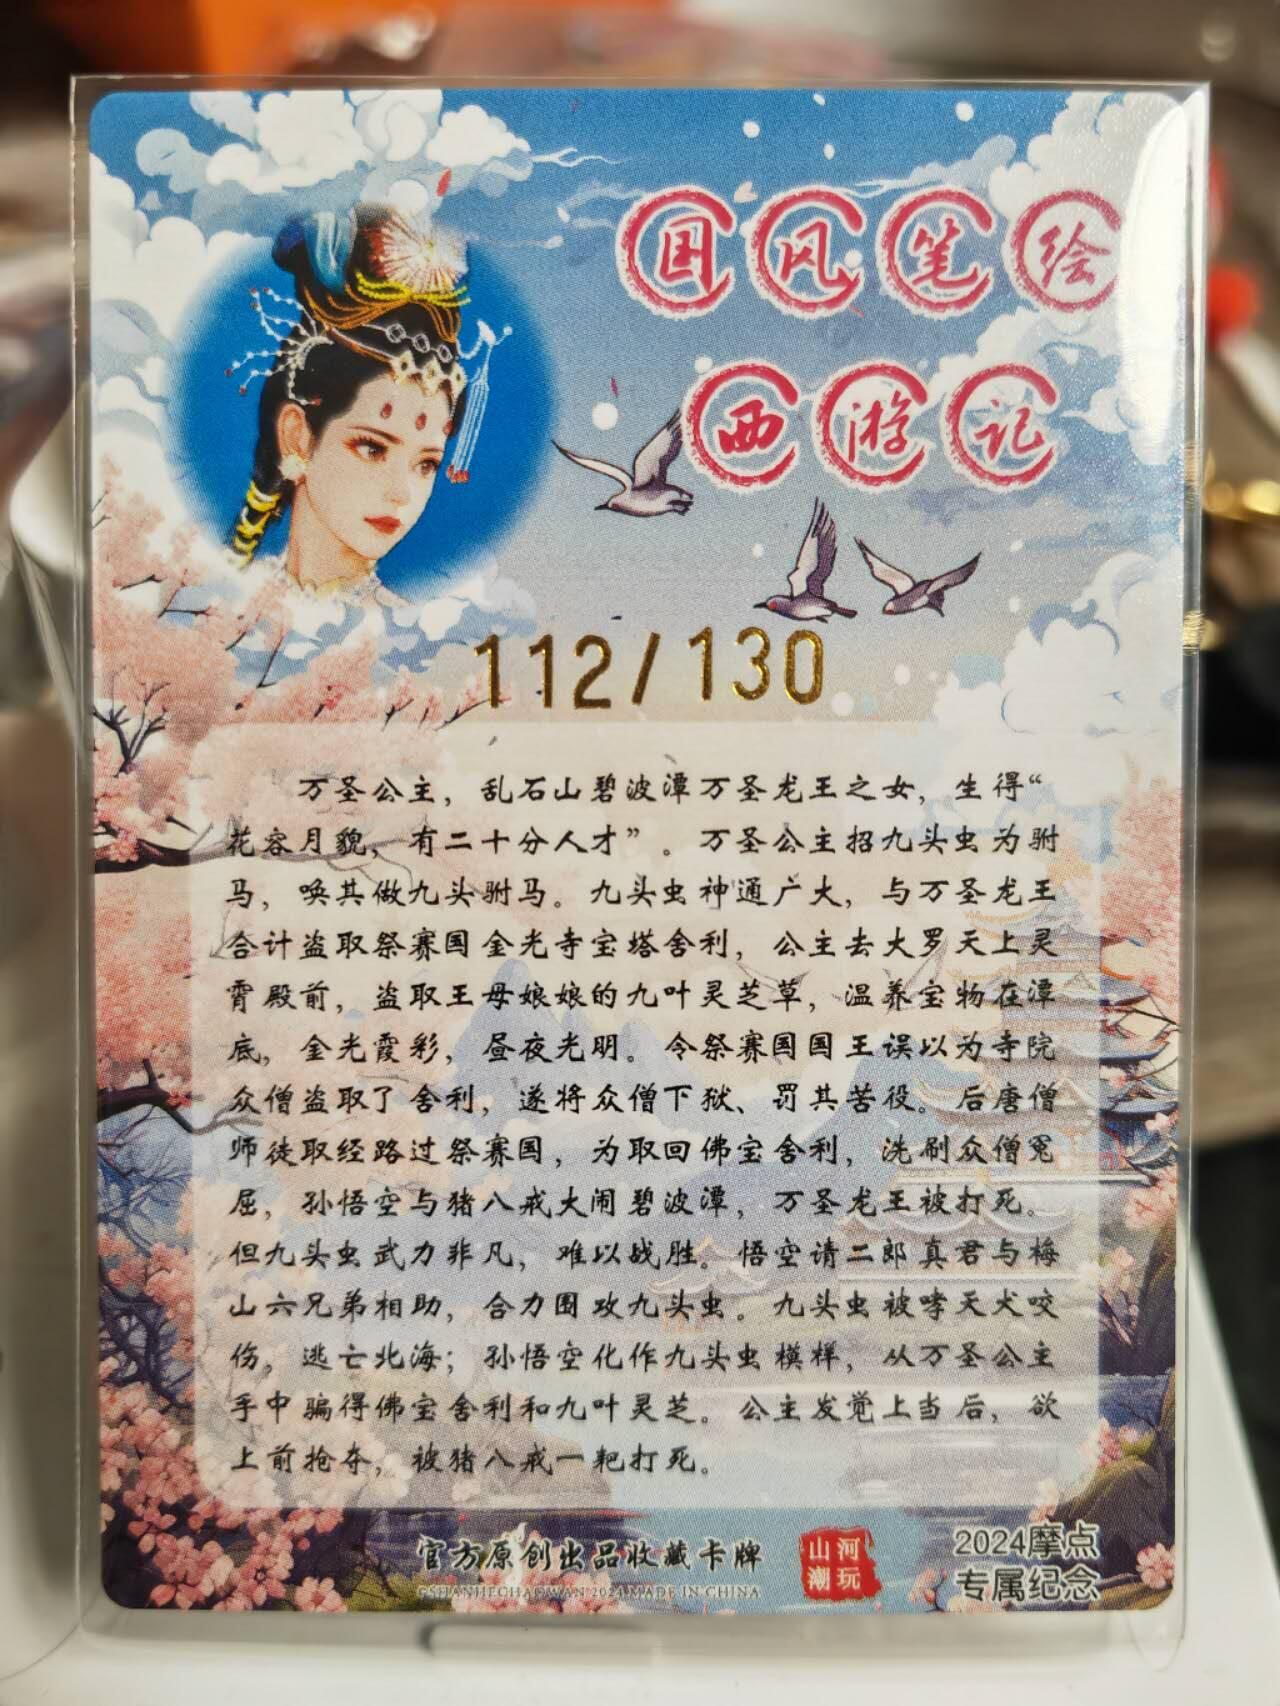 国风笔绘
西游记
112/130
万圣公主，乱石山碧波潭万圣龙王之女，生得“
花容月貌，有二十分人才”。万圣公主招九头虫为驸
马，唤其做九头驸马。九头虫神通广大，与万圣龙王
合计盗取祭赛国金光寺宝塔舍利，公主去大罗天上灵
霄殿前，盗取王母娘娘的九叶灵芝草，温养宝物在潭
底，金光霞彩，昼夜光明。令祭赛国国王误以为寺院
众僧盗取了舍利，遂将众僧下狱、罚其苦役。后唐僧
师徒取经路过祭赛国，为取回佛宝舍利，洗刷众僧冤
屈，孙悟空与猪八戒大闹碧波潭，万圣龙王被打死。
但九头虫武力非凡，难以战胜。悟空请二郎真君与梅
山六兄弟相助，合力围攻九头虫。九头虫被哮天犬咬
伤，逃亡北海；孙悟空化作九头虫模样，从万圣公主
手中骗得佛宝舍利和九叶灵芝。公主发觉上当后，欲
上前抢夺，被猪八戒一耙打死。
官方原创出品收藏卡牌
©SHANHECHAOWAN 2024 MADE IN CHINA
山河
潮玩
2024摩点
专属纪念